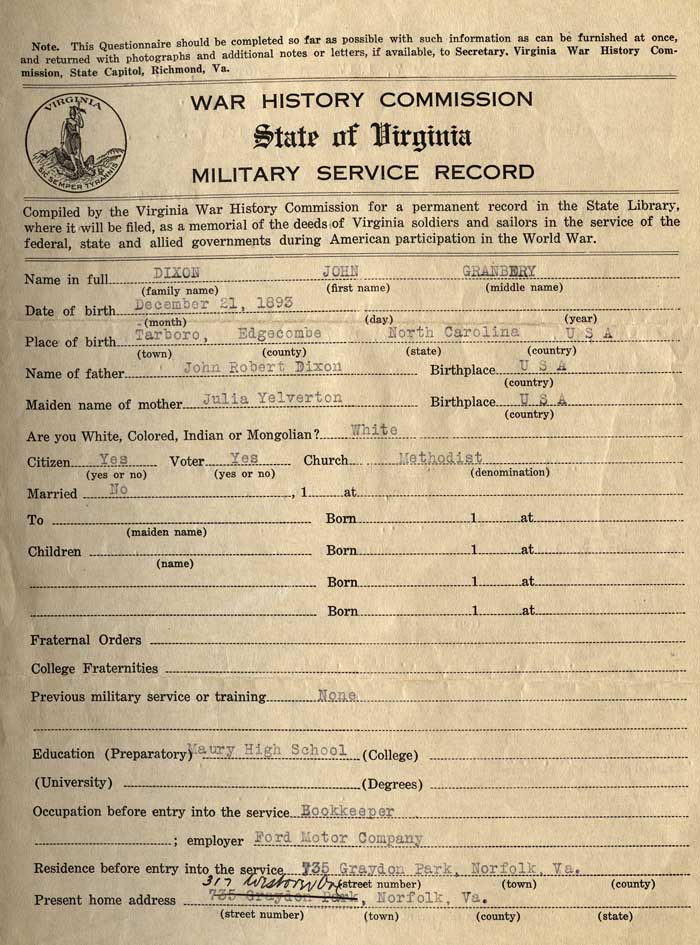 Note. This Questionnaire should be completed so far as possible with such information as can be furnished at once,
and returned with photographs and additional notes or letters, if available, to Secretary. Virginia War History Com-
mission, State Capitol, Richmond, Va.
VIRGINIA
SIC SEMPER TYRANNIS
WAR HISTORY COMMISSION
State of Virginia
MILITARY SERVICE RECORD
Compiled by the Virginia War History Commission for a permanent record in the State Library,
where it will be filed, as a memorial of the deeds of Virginia soldiers and sailors in the service of the
federal, state and allied governments during American participation in the World War.
Name in full DIXON JOHN GRANBERY
(family name) (first name) (middle name)
Date of birth December 21, 1893
(month) (day) (year)
Place of birth Tarboro, Edgecombe North Carolina U S A
(town) (county) (state) (country)
Name of father John Robert Dixon Birthplace U S A
(country)
Maiden name of mother Julia Yelverton Birthplace U S A
(country)
Are you White, Colored, Indian or Mongolian? White
Citizen Yes Voter Yes Church Methodist
(yes or no) (yes or no) (denomination)
Married No , 1 at
To Born 1 at
(maiden name)
Children Born 1 at
(name)
Born 1 at
Born 1 at
Fraternal Orders
College Fraternities
Previous military service or training None
Education (Preparatory) Maury High School (College)
(University) (Degrees)
Occupation before entry into the service Bookkeeper
; employer Ford Motor Company
Residence before entry into the service 735 Graydon Park, Norfolk, Va.
317 (street number) (town) (county)
Present home address 735 Graydon Park, Norfolk, Va.
(street number) (town) (county) (state)